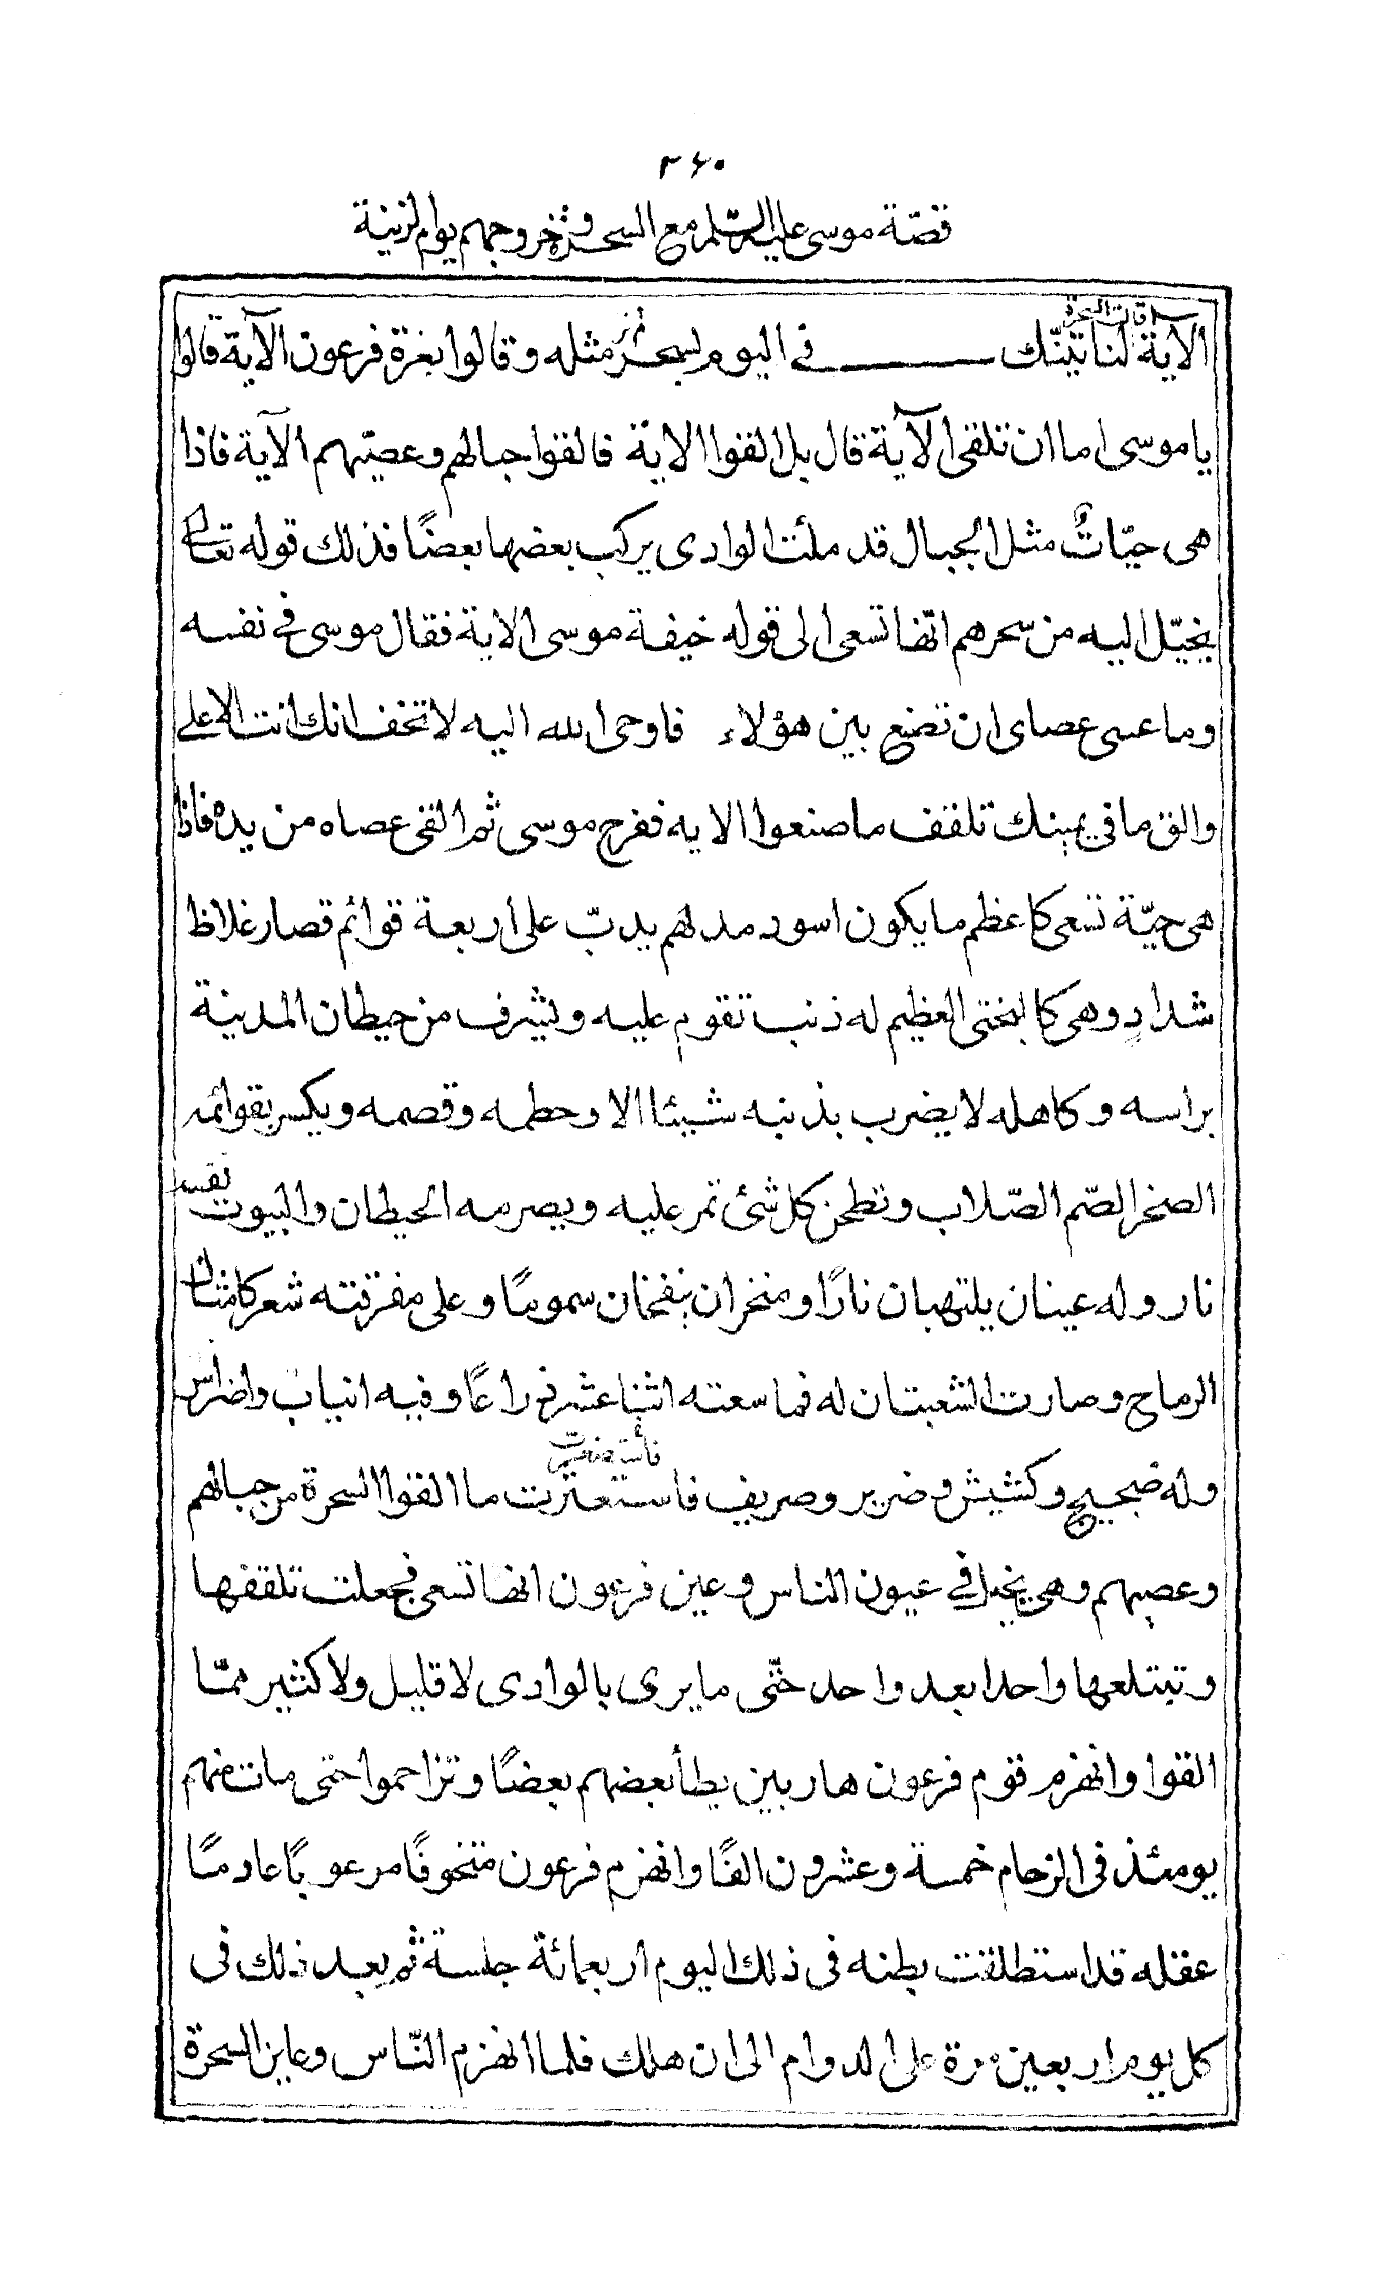 ٣٦٠
قصّة موسى عليه السّلم مع السحرة وخروجهم يوم الزينة
الآية قالت السحرة لناتينّك في اليوم بسحر مثله وقالوا بعزة فرعون الآية قالوا
ياموسى اما ان تلقى الآية قال بل القوا الاية فالقوا حبالهم وعصيّهم الآية فاذا
هى حيّاتٌ مثل الجبال قد ملأت الوادى يركب بعضها بعضًا فذلك قوله تعالى
يخيّل اليه من سحرهم انّها تسعى الى قوله خيفة موسى الاية فقال موسى فى نفسه
وما عسى عصاى ان تصنع بين هؤلاء فاوحى الله اليه لا تخف انك انت الاعلى
والق ما فى يمينك تلقف ما صنعوا الايه ففرح موسى ثم القى عصاه من يده فاذا
هى حيّة تسعى كاعظم ما يكون اسود مدلهم يدبّ على اربعة قوائم قصار غلاظ
شدادٍ وهى كالبختى العظيم له ذنب تقوم عليه وتشرف من حيطان المدينة
براسه وكاهله لا يضرب بذنبه شيئا الا وحطمه وقصمه ويكسر بقوائمه
الصخر الصّم الصّلاب وتطحن كل شئ تمر عليه ويصرمه الحيطان والبيوت بنفسه
نار وله عينان يلتهبان نارًا ومنخران ينفخان سمومًا وعلى مفرقته شعر كامثال
الرماح وصارت الشعبتان له فما سعته اثنا عشر ذراعًا وفيه انياب واضراس
وله ضجيج وكشيش وضرير وصريف فاستعترت ما القوا السحرة من حبالهم
وعصيهم وهى يخيل فى عيون الناس وعين فرعون انها تسعى فجعلت تلقفها
وتبتلعها واحدا بعد واحد حتّى ما يرى بالوادى لا قليل ولا كثير ممّا
القوا وانهزم قوم فرعون هاربين يطأ بعضهم بعضًا وتزاحموا حتى مات منهم
يومئذ فى الزحام خمسة وعشرون الفًا وانهزم فرعون متخوفًا مرعوبًا عادمًا
عقله قد استطلقت بطنه فى ذلك اليوم اربعمائة جلسة ثم بعد ذلك فى
كل يوم اربعين مرة على الدوام الى ان هلك فلما انهزم النّاس وعاين السحرة